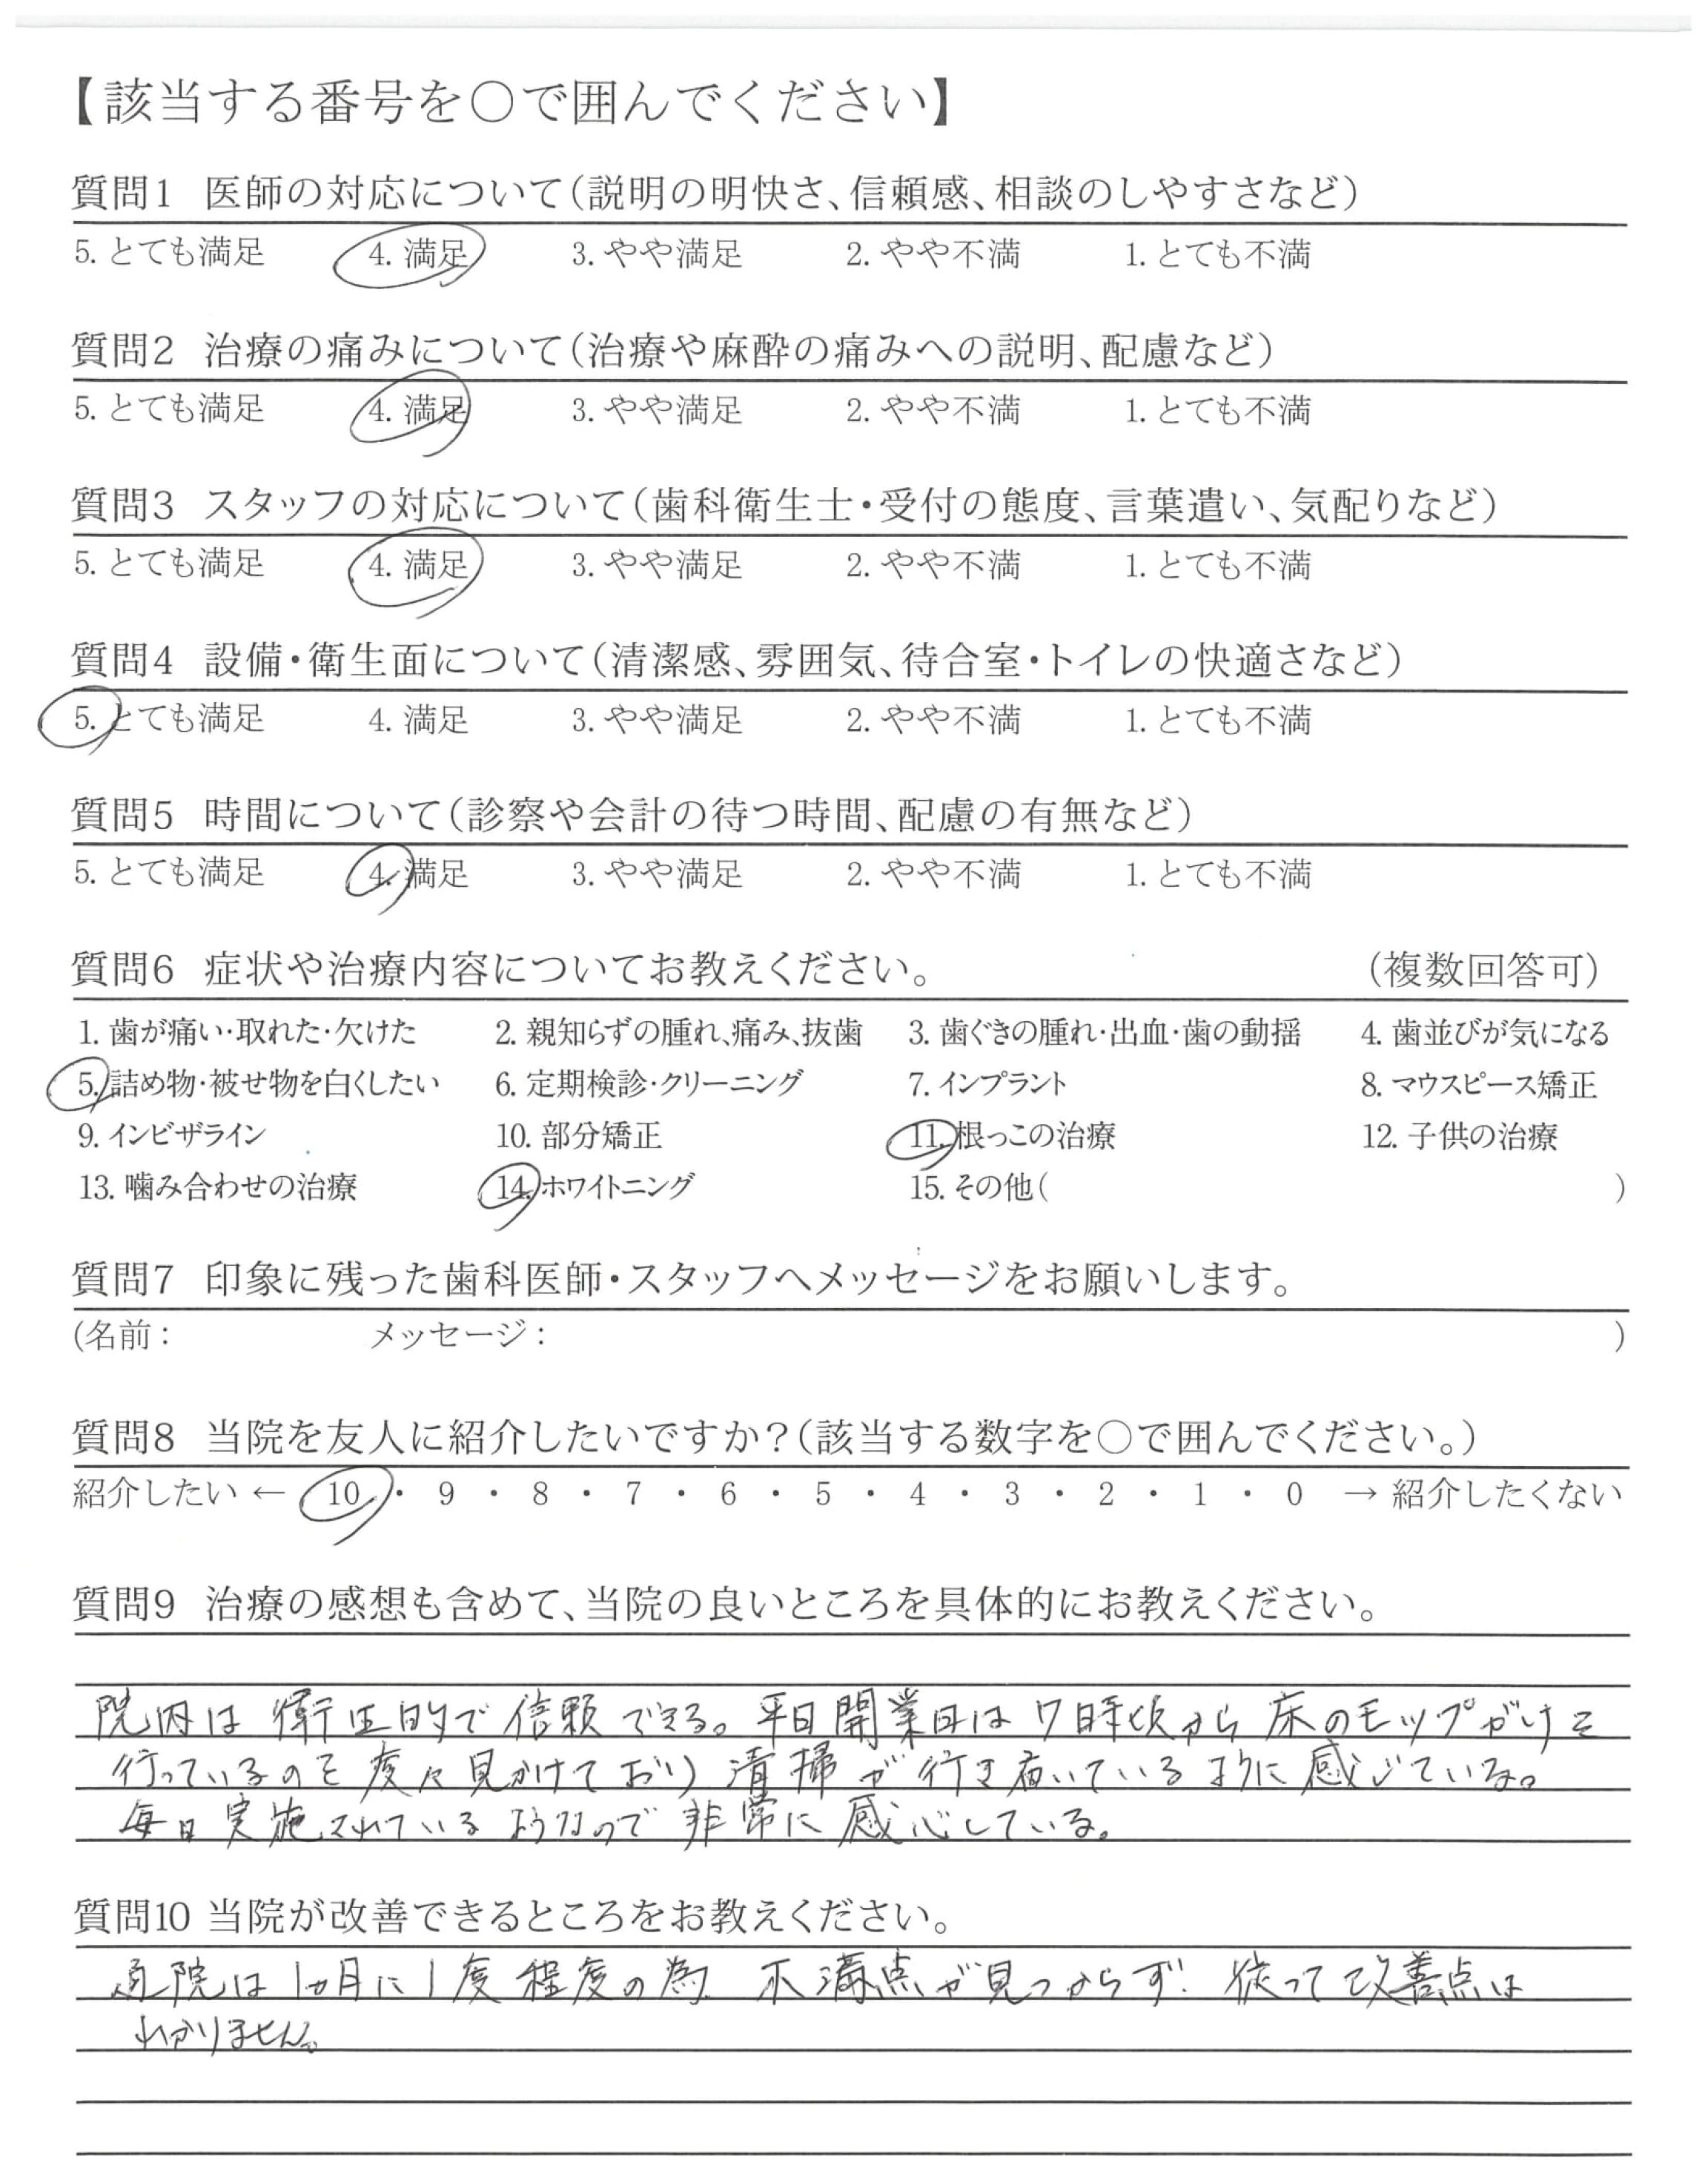 【該当する番号を○で囲んでください】
質問1 医師の対応について(説明の明快さ、信頼感、相談のしやすさなど)
5. とても満足 4. 満足 3. やや満足 2. やや不満 1. とても不満
質問2 治療の痛みについて(治療や麻酔の痛みへの説明、配慮など)
5. とても満足 4. 満足 3. やや満足 2. やや不満 1. とても不満
質問3 スタッフの対応について(歯科衛生士・受付の態度、言葉遣い、気配りなど)
5. とても満足 4. 満足 3. やや満足 2. やや不満 1. とても不満
質問4 設備・衛生面について(清潔感、雰囲気、待合室・トイレの快適さなど)
5. とても満足 4. 満足 3. やや満足 2. やや不満 1. とても不満
質問5 時間について(診察や会計の待つ時間、配慮の有無など)
5. とても満足 4. 満足 3. やや満足 2. やや不満 1. とても不満
質問6 症状や治療内容についてお教えください。 (複数回答可)
1. 歯が痛い・取れた・欠けた 2. 親知らずの腫れ、痛み、抜歯 3. 歯ぐきの腫れ・出血・歯の動揺 4. 歯並びが気になる
5. 詰め物・被せ物を白くしたい 6. 定期検診・クリーニング 7. インプラント 8. マウスピース矯正
9. インビザライン 10. 部分矯正 11. 根っこの治療 12. 子供の治療
13. 噛み合わせの治療 14. ホワイトニング 15. その他( )
質問7 印象に残った歯科医師・スタッフへメッセージをお願いします。
(名前: メッセージ: )
質問8 当院を友人に紹介したいですか?(該当する数字を○で囲んでください。)
紹介したい ← 10 ・ 9 ・ 8 ・ 7 ・ 6 ・ 5 ・ 4 ・ 3 ・ 2 ・ 1 ・ 0 → 紹介したくない
質問9 治療の感想も含めて、当院の良いところを具体的にお教えください。
院内は衛生的で信頼できる。平日開業日は7時頃から床のモップがけを
行っているのを度々見かけており清掃が行き届いているように感じている。
毎日実施されているようなので非常に感心している。
質問10 当院が改善できるところをお教えください。
通院は1ヵ月に1度程度の為、不満点が見つからず、従って改善点は
わかりません。